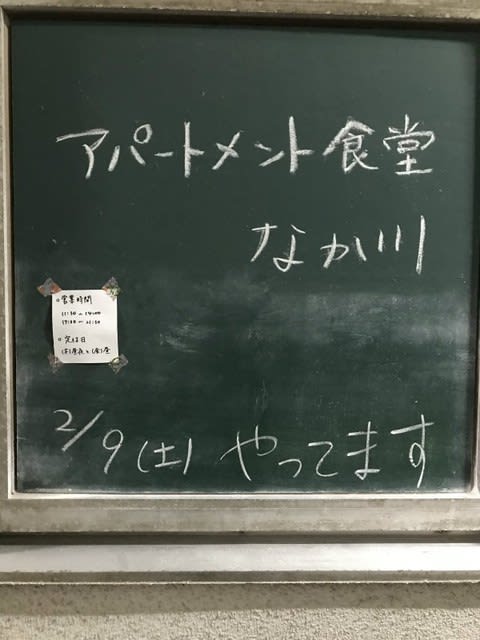 アパートメント食堂
なか川
○営業時間
11:30〜14:00
○定休日
2/9(土)やってます